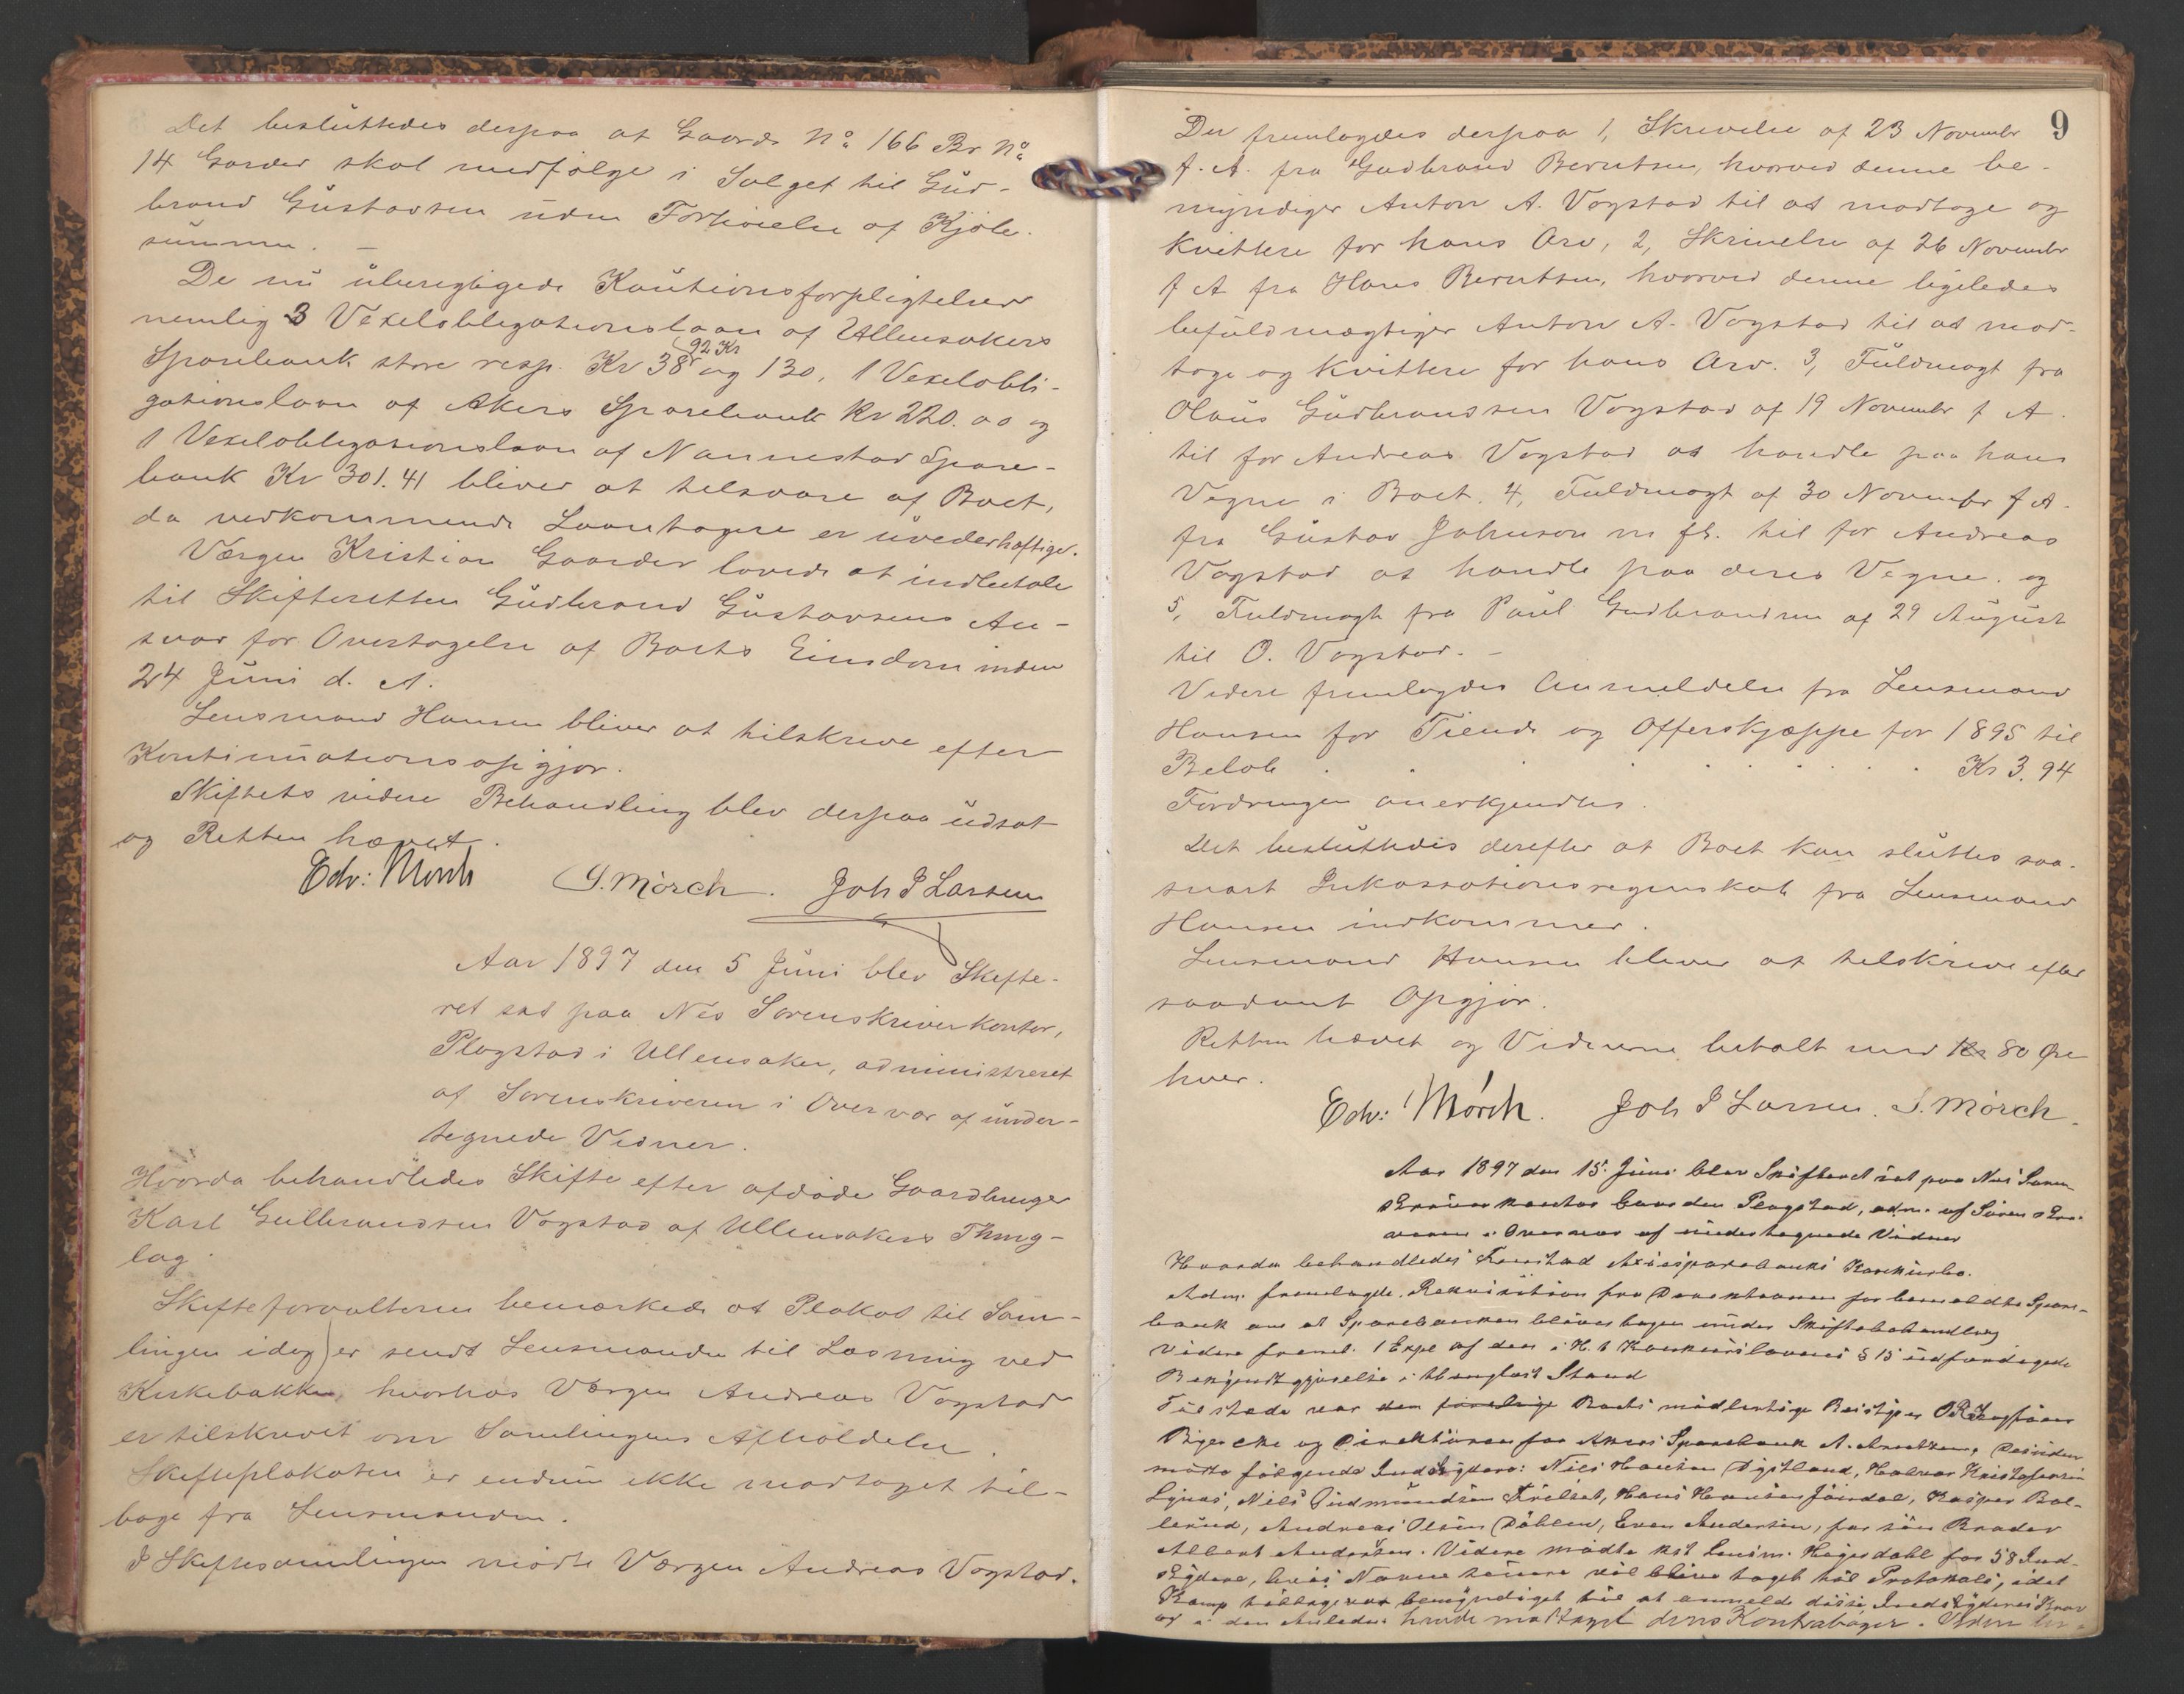 Det besluttedes derpaa at Gaards No 166 Br No
14 Gorder skal medfølge i Salget til Gud-
brand Gustavsen uden Forhøielse af Kjøbe-
summen. –
De nu uberigtigede Kautionsforpligtelser
nemlig 3 Vexelobligationslaan af Ullensakers
Sparebank store resp. Kr 38, 92 Kr og 130, 1 Vexelobli-
gationslaan af Akers Sparebank Kr 220.00 og
1 Vexelobligationslaan af Nannestad Spare-
bank Kr 301.41 bliver at tilsvare af Boet,
da vedkommende Laantagere er uvederhæftige.
Værgen Kristian Gaarder lovede at indbetale
til Skifteretten Gudbrand Gustavsens An-
svar for Overtagelse af Boets Eiendom inden
24 Juni d. A.
Lensmand Hansen bliver at tilskrive efter
Kontinuationsopgjør.
Skiftets videre Behandling blev derpaa udsat
og Retten hævet.
Edv: Mørch S. Mørch. Joh P Larsen
Aar 1897 den 5 Juni blev Skifte-
ret sat paa Nes Sorenskriverkontor,
Plogstad i Ullensaker, administreret
af Sorenskriveren i Overvær af under-
tegnede Vidner.
Hvorda behandledes Skifte efter afdøde Gaardbruger
Karl Gulbrandsen Vogstad af Ullensakers Thing-
lag.
Skifteforvalteren bemærkede at Plakat til Sam-
lingen idag er sendt Lensmanden til Læsning ved
Kirkebakken, hvorhos Værgen Andreas Vogstad
er tilskrevet om Samlingens Afholdelse.
Skifteplakaten er endnu ikke modtaget til-
bage fra Lensmanden.
I Skiftesamlingen mødte Værgen Andreas Vogstad.
9
Der fremlagdes derpaa 1, Skrivelse af 23 Novembr
f. A. fra Gudbrand Berntsen, hvorved denne be-
myndiger Anton A. Vogstad til at modtage og
kvittere for hans Arv, 2, Skrivelse af 26 Novembr
f A fra Hans Berntsen, hvorved denne ligeledes
befuldmægtiger Anton A. Vogstad til at mod-
tage og kvittere for hans Arv. 3, Fuldmagt fra
Olaus Gudbrandsen Vogstad af 19 Novembr f A.
til for Andreas Vogstad at handle paa hans
Vegne i Boet. 4, Fuldmagt af 30 Novembr f A.
fra Gustav Johnson m fl. til for Andreas
Vogstad at handle paa deres Vegne. og
5, Fuldmagt fra Paul Gudbrandsen af 29 August
til O. Vogstad. –
Videre fremlagdes Anmeldelse fra Lensmand
Hansen for Tiende og Offerskjæppe for 1895 til
Beløb . . . . . . . . . Kr 3.94
Fordringen anerkjendtes.
Det besluttedes derefter at Boet kan sluttes saa-
snart Inkassationsregnskab fra Lensmand
Hansen indkommer.
Lensmand Hansen bliver at tilskrive efter
saadant Opgjør.
Retten hævet og Vidnerne betalt med Kr 80 Øre
hver.
Edv: Mørch. Joh P Larsen. S. Mørch.
Aar 1897 den 15. Juni blev Skifteret sat paa Nes Soren
skriverkontor Gaarden Plogstad, adm. af Sorenskri-
veren i Overvær af undertegnede Vidner
Hvorda behandledes Trøstad Sparebanks Konkursbo.
Adm. fremlagde Rekvisition fra Direktionen for bemeldte Spare-
bank om at Sparebanken bliver tagen under Skiftebehandling
Videre freml. 1 Expl af den i H. t Konkurslovens § 15 udfærdigede
Bekjendtgjørelse i thinglæst Stand
Tilstede var den Boets midlertidige Bestyrer
og Direktøren for Akers Sparebank A. Desuden
mødte følgende Indskydere: Nils Hansen Halvor Kristofersen
Nils Gudmundsen Hans Hansen Kasper Bol-
lerud, Andreas Olsen Døhlen, Even Andersen, for sin Broder
Albert Andersen. Videre mødte Lensm. Hagesdahl for 58 Ind-
skydere, hvis Navne senere vil blive taget til Protokols, idet
Komp bemyndiget til at anmelde disse Indskyderes Krav
og i den Anledn. havde modtaget deres Kontrabøger.